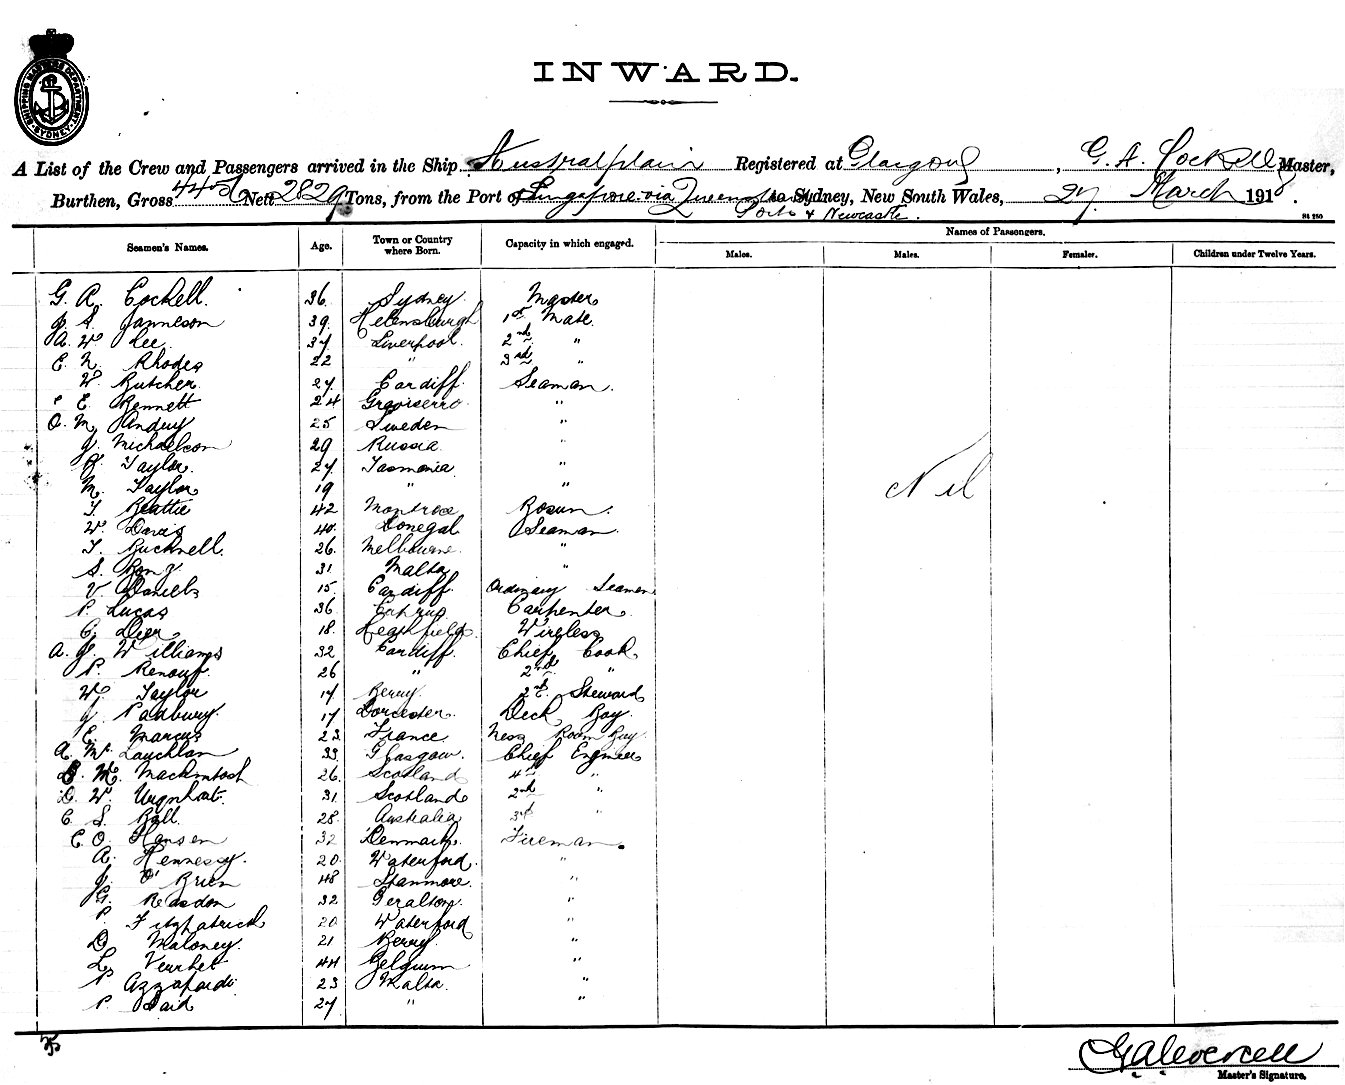 SHIPPING MASTERS DEPARTMENT SYDNEY
INWARD.
A List of the Crew and Passengers arrived in the Ship Australplain Registered at Glasgow, G. A. Cockell Master,
Burthen, Gross Nett 2829 Tons, from the Port of Singapore via Queensland to Sydney, New South Wales, 27 March 1918.
Ports & Newcastle.
Seamen's Names. Age. Town or Country where Born. Capacity in which engaged. Names of Passengers.
Males. Males. Females. Children under Twelve Years.
G. A. Cockell. 36 Sydney. Master
J. S. Jamieson 39. Helensburgh 1st Mate.
A. W Lee 37 Liverpool. 2nd "
E. N. Rhodes 22 " 3rd "
W. Butcher. 27 Cardiff. Seaman.
E. Bennett 24 "
O. M. 25 Sweden "
J. Michaelson 29 Russia "
Taylor. 27 Tasmania "
M. Taylor 19 " "
T. Beattie 42 Montrose Bosun.
W. Davis 40. Donegal Seaman.
T. Bucknell. 26. Melbourne. "
S. 31 Malta "
V. Daniels 15. Cardiff. Ordinary Seaman
P. Lucas 36 Carpenter.
C. Deer 18. Heathfield. Wireless
A. J. Williams 32 Cardiff. Chief Cook
P. Renouf. 26 " 2nd "
W. Taylor 17 Berry. 2nd Steward
J. Padbury. 17 Dorcester. Deck Boy.
E. Marcus 23. France Mess Room Boy
A. Mc Lauchlan 33. Glasgow. Chief Engineer
M. Mackintosh 26. Scotland 4th "
D. W. Urquhart. 31 Scotland 2nd "
C S. Ball. 28. Australia 3rd "
E O. Hansen 32 Denmark. Fireman.
A. Hennessy. 20. Waterford. "
J. O'Brien 48 Stanmore. "
G. Reasdon 32 "
P. Fitzpatrick 20 Waterford "
D. Maloney. 21 Berry. "
L. 44 Belgium "
P Azzopardi 23 Malta. "
P. Said 27 " "
Nil
G A Cockell
Master's Signature.